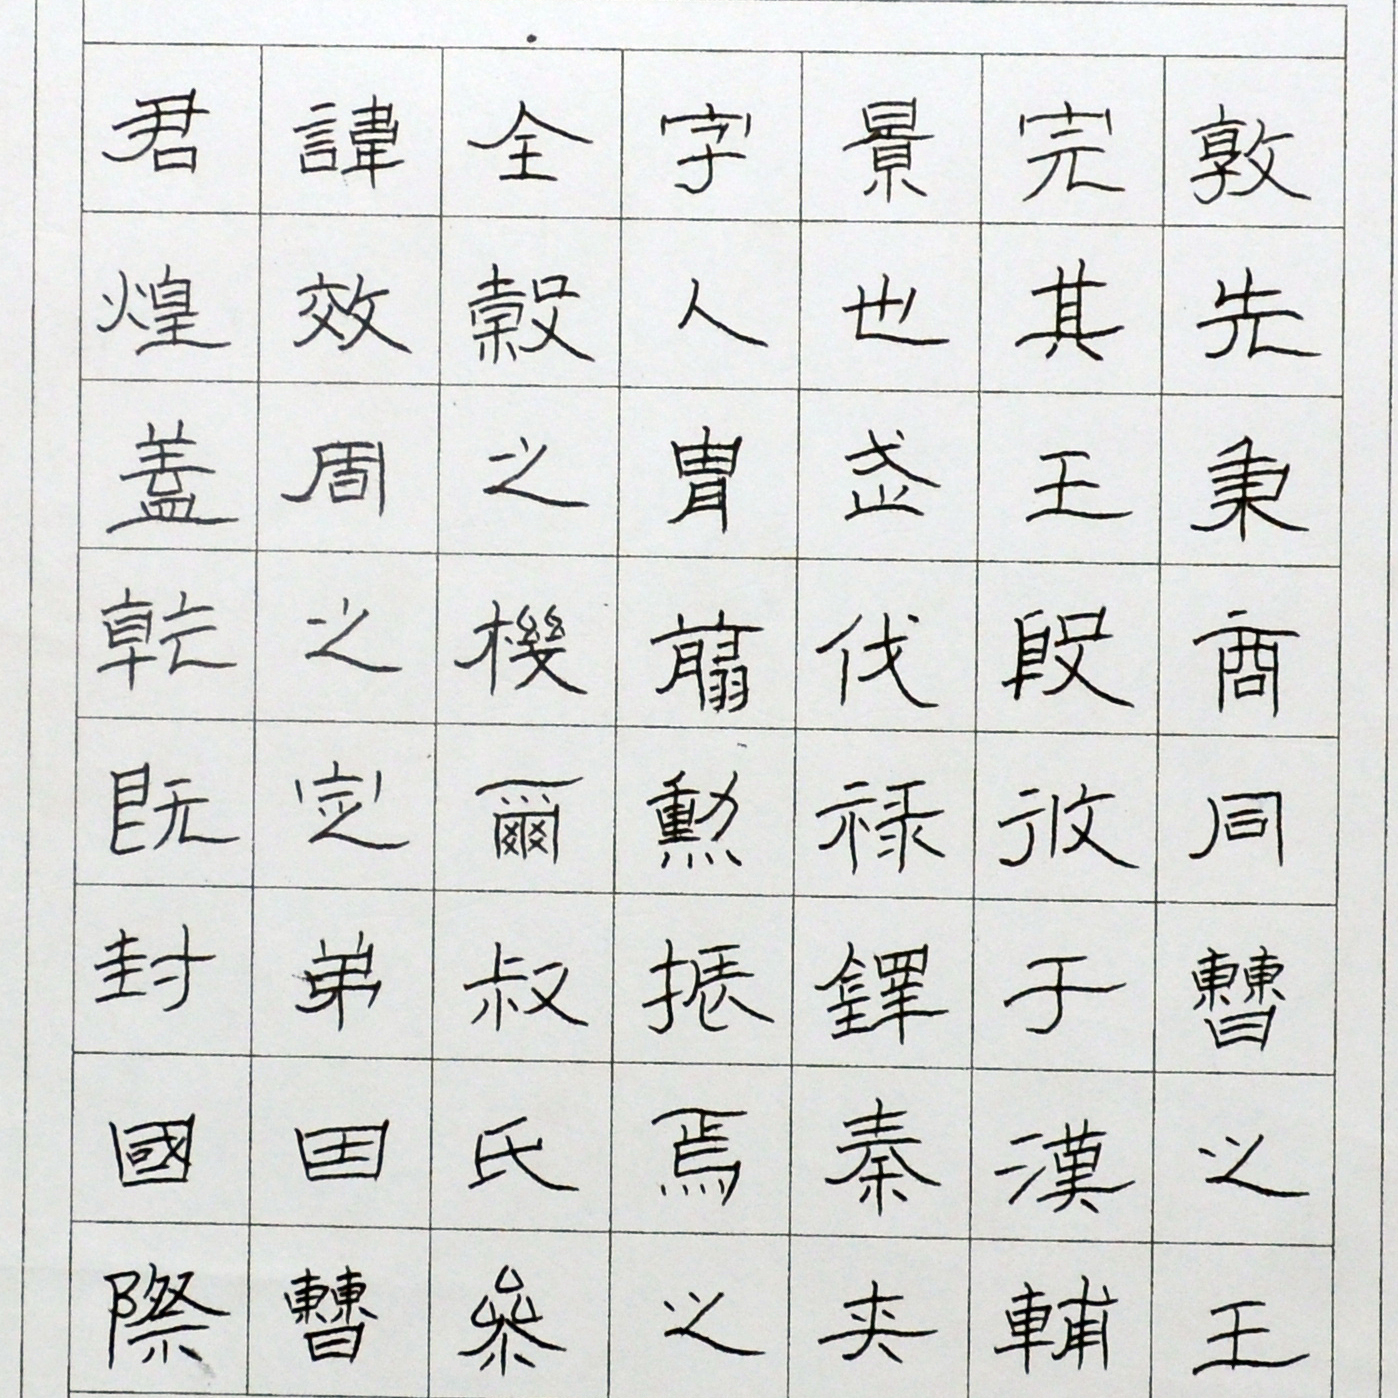 君諱全字景完敦
煌效穀人也其先
蓋周之胄武王秉
乾之機翦伐殷商
既定爾勳祿攸同
封弟叔振鐸于曹
國因氏焉秦漢之
際曹參之夾輔王